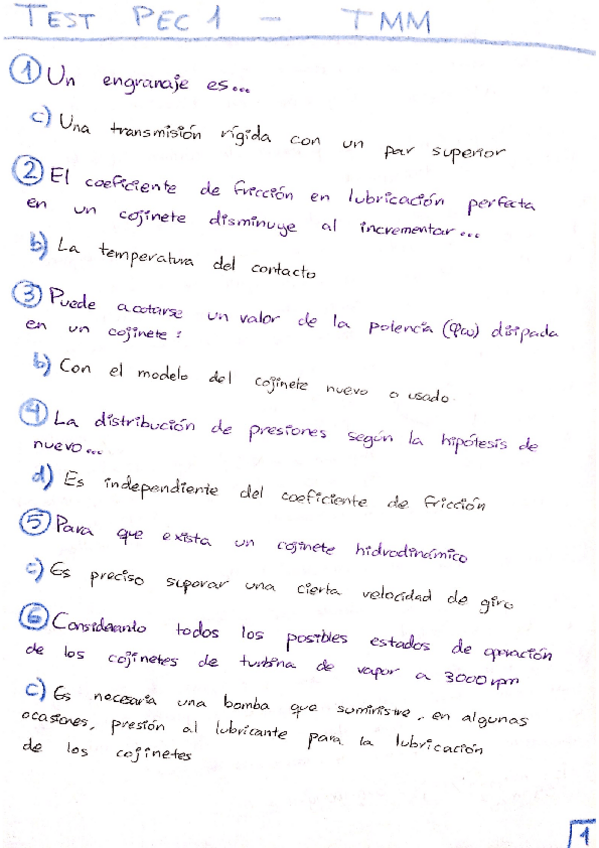 TEST PEC 1 - TMM
1 Un engranaje es...
c) Una transmisión rígida con un par superior
2 El coeficiente de fricción en lubricación perfecta
en un cojinete disminuye al incrementar...
b) La temperatura del contacto
3 Puede acotarse un valor de la potencia (φω) disipada
en un cojinete:
b) Con el modelo del cojinete nuevo o usado.
4 La distribución de presiones según la hipótesis de
nuevo...
d) Es independiente del coeficiente de fricción
5 Para que exista un cojinete hidrodinámico
c) Es preciso superar una cierta velocidad de giro
6 Considerando todos los posibles estados de operación
de los cojinetes de turbina de vapor a 3000 rpm
c) Es necesaria una bomba que suministre, en algunas
ocasiones, presión al lubricante para la lubricación
de los cojinetes
1